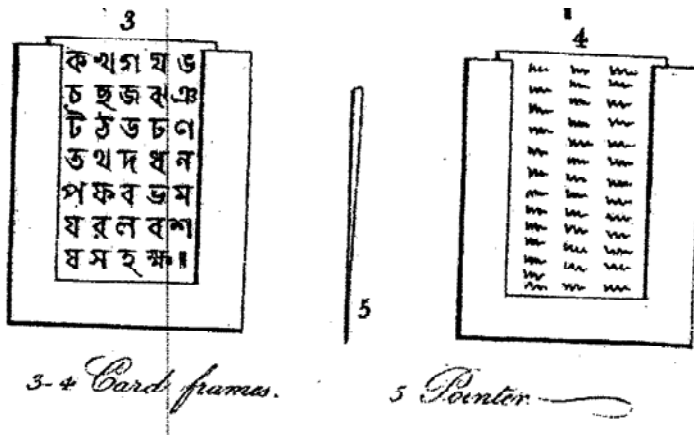 3
ক খ গ ঘ ঙ
চ ছ জ ঝ ঞ
ট ঠ ড ঢ ণ
ত থ দ ধ ন
প ফ ব ভ ম
য র ল ব শ
ষ স হ ক্ষ ॥
4
5
3-4 Card frames.
5 Pointer